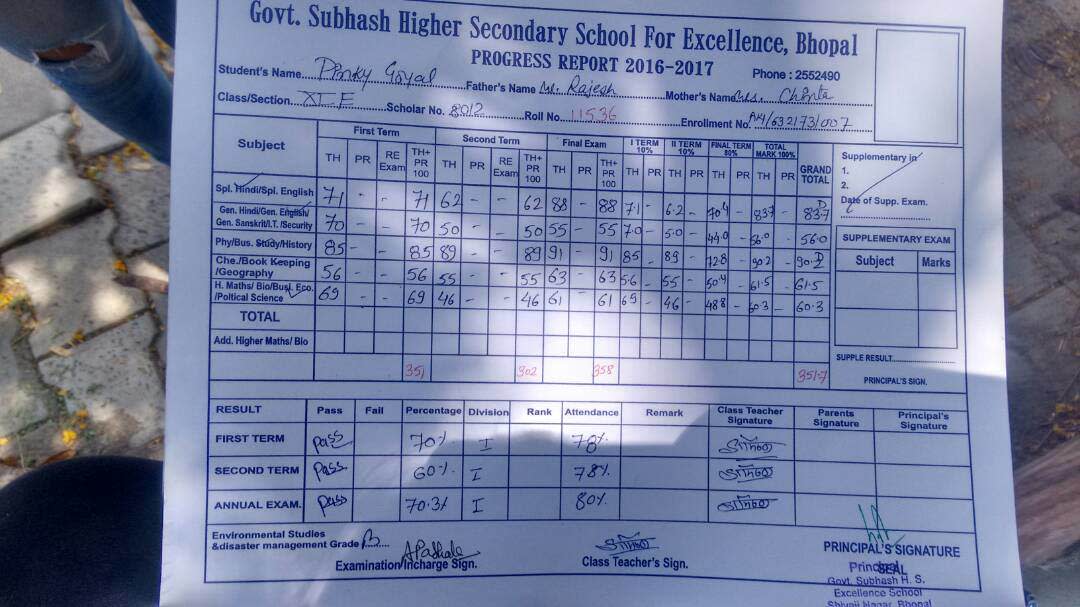 Govt. Subhash Higher Secondary School For Excellence, Bhopal
PROGRESS REPORT 2016-2017
Phone : 2552490
Student's Name.... Pinky Goyal Father's Name Mr. Rajesh Mother's Name Mrs.
Class/Section. XI-F Scholar No. 8012 Roll No. 11536 Enrollment No.
Subject First Term Second Term Final Exam I TERM 10% II TERM 10% FINAL TERM 80% TOTAL MARK 100% GRAND TOTAL
TH PR RE Exam TH+ PR 100 TH PR RE Exam TH+ PR 100 TH PR TH+ PR 100 TH PR TH PR TH PR TH PR
Spl. Hindi/Spl. English 71 - - 71 62 - - 62 88 - 88 7.1 - 6.2 - 70.4 - 83.7 - D 83.7
Gen. Hindi/Gen. English/ Gen. Sanskrit/I.T. /Security 70 - - 70 50 - - 50 55 - 55 7.0 - 5.0 - 44.0 - 56.0 - 56.0
Phy/Bus. Study/History 85 - - 85 89 - - 89 91 - 91 8.5 - 8.9 - 72.8 - 90.2 - 90.2 D
Che./Book Keeping /Geography 56 - - 56 55 - - 55 63 - 63 5.6 - 5.5 - 50.4 - 61.5 - 61.5
H. Maths/ Bio/Busi. Eco. /Poltical Science 69 - - 69 46 - - 46 61 - 61 6.9 - 4.6 - 48.8 - 60.3 - 60.3
TOTAL
Add. Higher Maths/ Bio
351 302 358 351.7
Supplementary in
1.
2.
Date of Supp. Exam.
SUPPLEMENTARY EXAM
Subject Marks
SUPPLE RESULT
PRINCIPAL'S SIGN.
RESULT Pass Fail Percentage Division Rank Attendance Remark Class Teacher Signature Parents Signature Principal's Signature
FIRST TERM pass 70% I 78%
SECOND TERM pass 60% I 78%
ANNUAL EXAM. pass 70.3% I 80%
Environmental Studies
&disaster management Grade B
Examination/Incharge Sign.
Class Teacher's Sign.
PRINCIPAL'S SIGNATURE
SEAL
Principal
Govt. Subhash H. S.
Excellence School
Shivaji Nagar, Bhopal